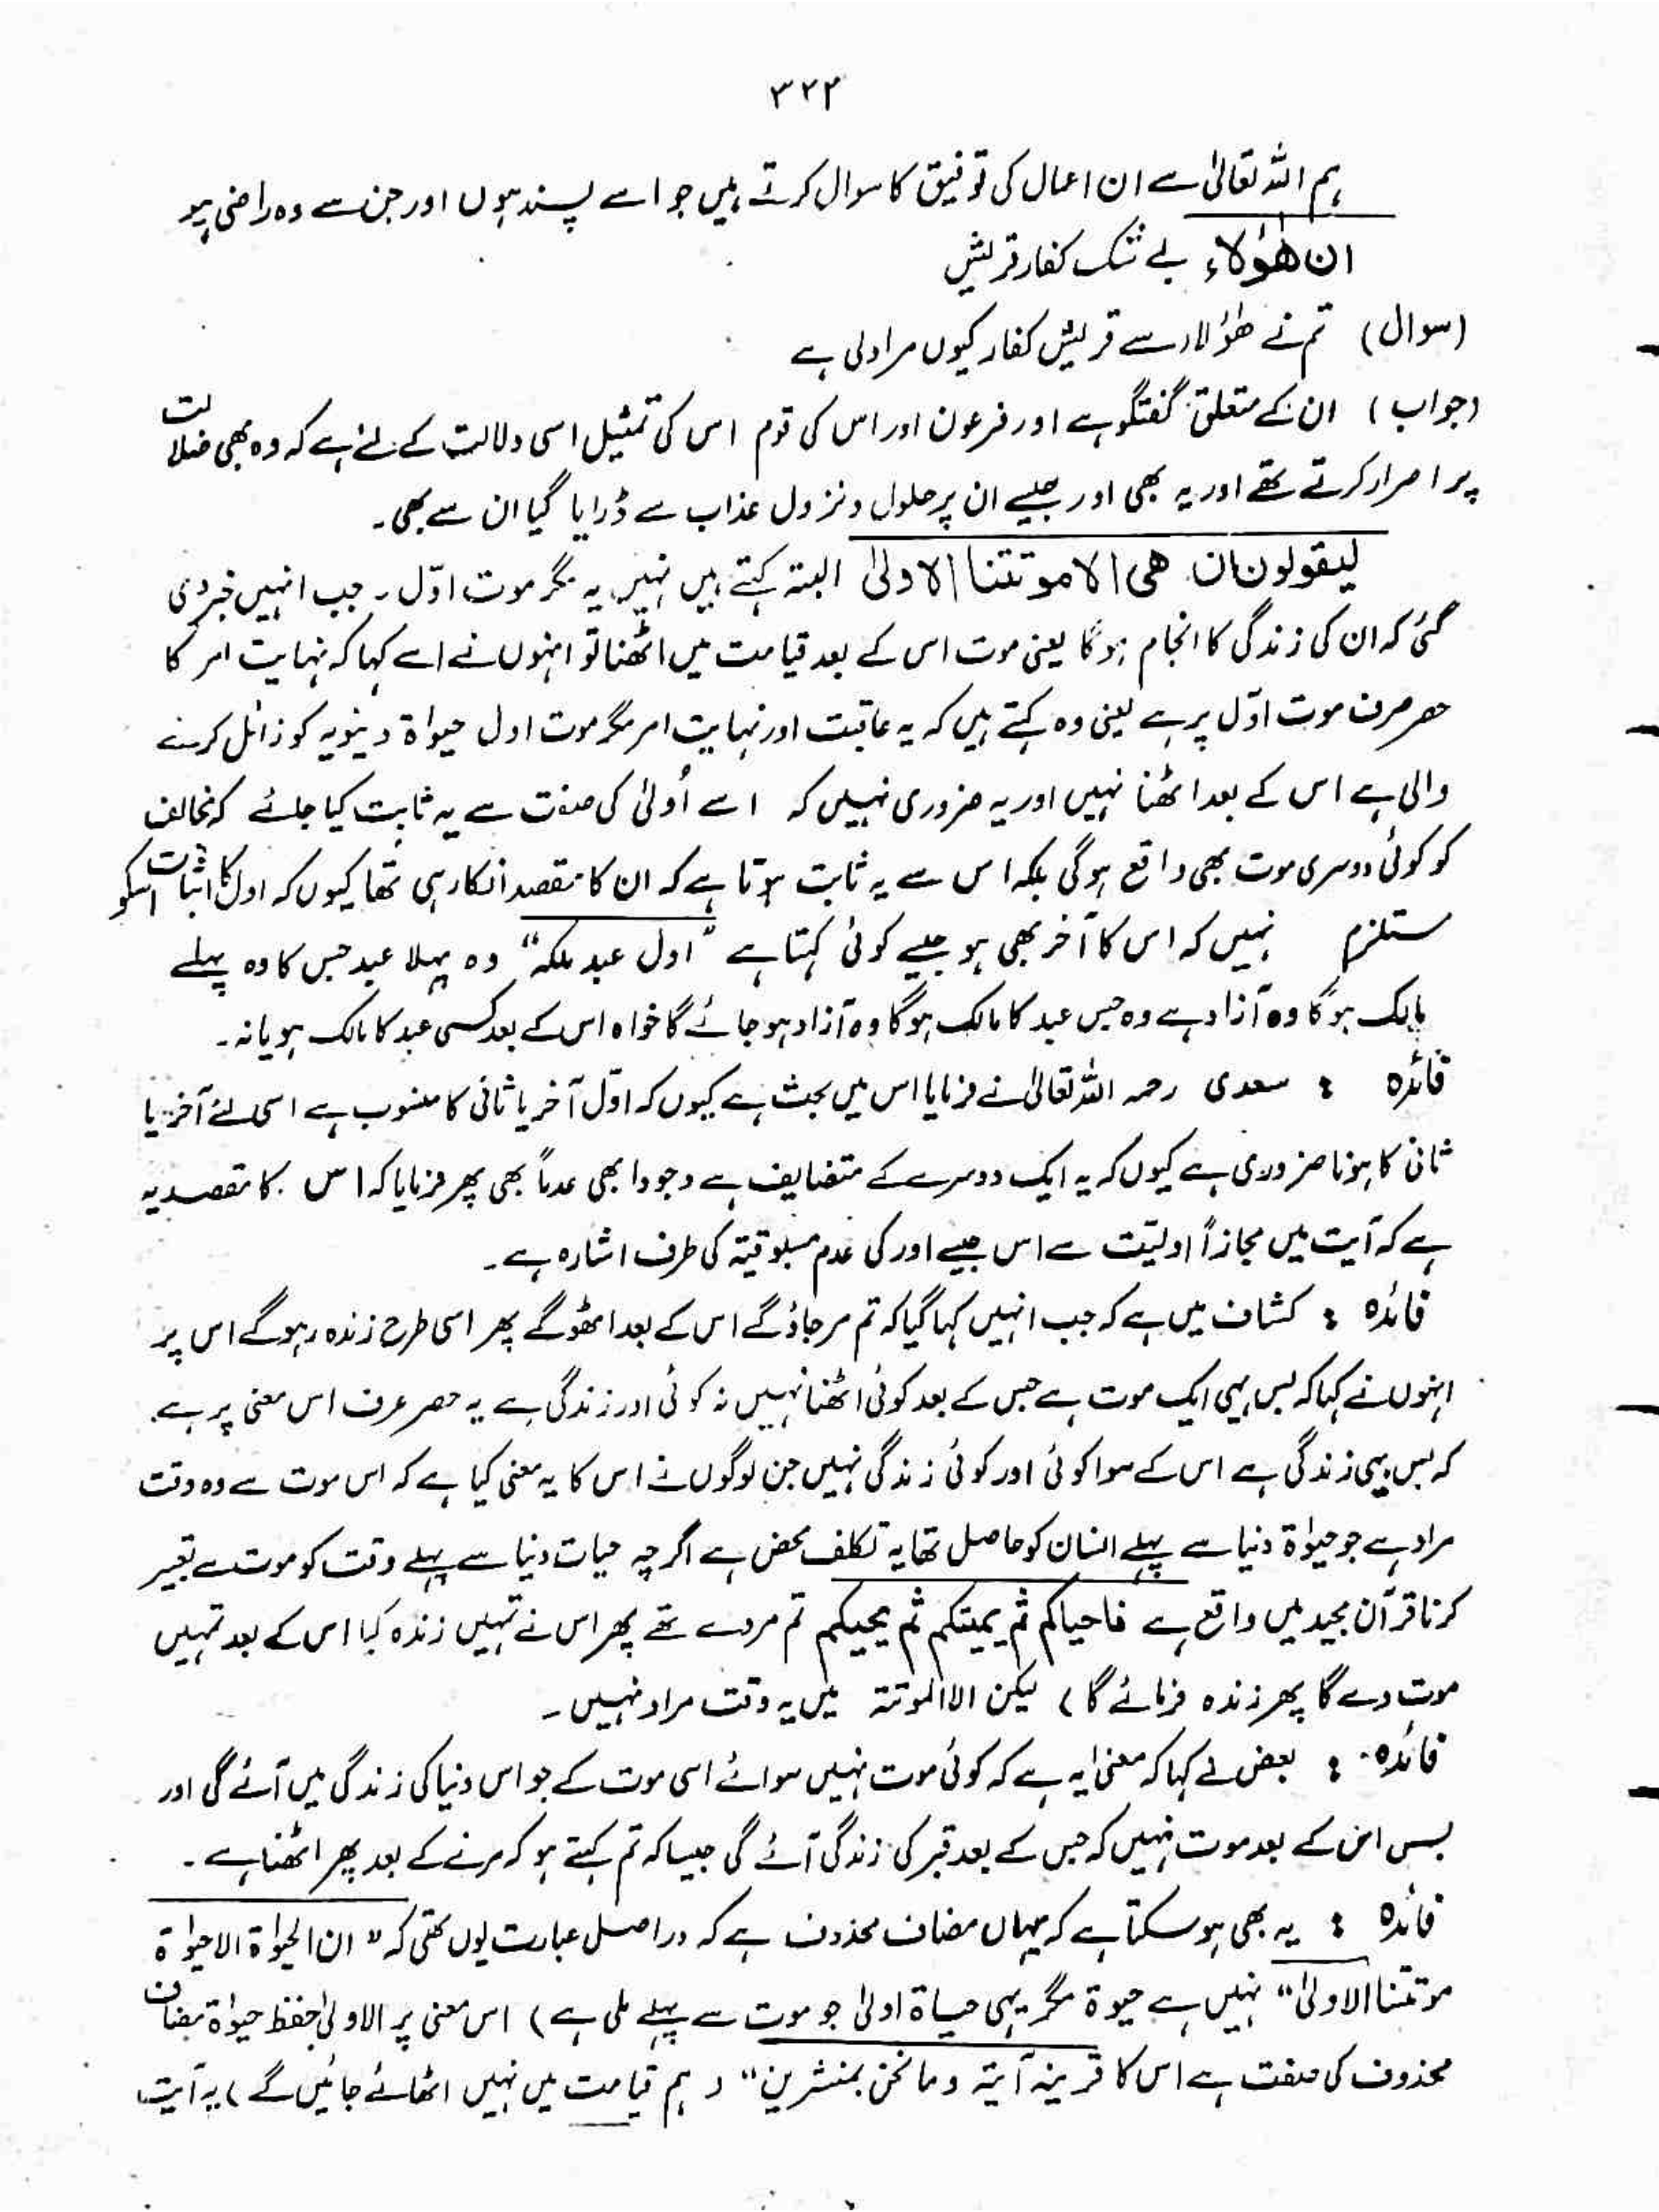 ۳۲۲
ہم اللہ تعالیٰ سے ان اعمال کی توفیق کا سوال کرتے ہیں جو اسے پسند ہوں اور جن سے وہ راضی ہو
ان ھٰؤلاء بے شک کفار قریش
(سوال) تم نے ھٰؤلاء سے قریش کفار کیوں مراد لی ہے
(جواب) ان کے متعلق گفتگو ہے اور فرعون اور اس کی قوم اس کی تمثیل اسی دلالت کے لئے ہے کہ وہ بھی ضلالت
پر اصرار کرتے تھے اور یہ بھی اور جیسے ان پر حلول و نزول عذاب سے ڈرایا گیا ان سے بھی۔
لیقولون ان ھی الا موتتنا الاولیٰ البتہ کہتے ہیں نہیں یہ مگر موت اوّل۔ جب انہیں خبر دی
گئی کہ ان کی زندگی کا انجام ہوگا یعنی موت اس کے بعد قیامت میں اٹھنا تو انہوں نے اسے کہا کہ نہایت امر کا
حصر صرف موت اوّل پر ہے یعنی وہ کہتے ہیں کہ یہ عاقبت اور نہایت امر مگر موت اول حیواۃ دینویہ کو زائل کرنے
والی ہے اس کے بعد اٹھنا نہیں اور یہ ضروری نہیں کہ اسے اُولیٰ کی صفت سے یہ ثابت کیا جائے کہ مخالف
کو کوئی دوسری موت بھی واقع ہوگی بلکہ اس سے یہ ثابت ہوتا ہے کہ ان کا مقصد انکار ہی تھا کیوں کہ اول کا اثبات اسکو
مستلزم نہیں کہ اس کا آخر بھی ہو جیسے کوئی کہتا ہے "اول عبد ملکہ" وہ پہلا عبد جس کا وہ پہلے
مالک ہوگا وہ آزاد ہے وہ جس عبد کا مالک ہوگا وہ آزاد ہو جائے گا خواہ اس کے بعد کسی عبد کا مالک ہو یا نہ۔
فائدہ : سعدی رحمہ اللہ تعالیٰ نے فرمایا اس میں بحث ہے کیوں کہ اوّل آخر یا ثانی کا منسوب ہے اسی لئے آخر یا
ثانی کا ہونا ضروری ہے کیوں کہ یہ ایک دوسرے کے متضایف ہے وجودا بھی عدماً بھی پھر فرمایا کہ اس کا مقصد یہ
ہے کہ آیت میں مجازاً اولیّت سے اس جیسے اور کی عدم مسبوقیۃ کی طرف اشارہ ہے۔
فائدہ : کشاف میں ہے کہ جب انہیں کہا گیا کہ تم مرجاؤ گے اس کے بعد اٹھو گے پھر اسی طرح زندہ رہو گے اس پر
انہوں نے کہا کہ بس یہی ایک موت ہے جس کے بعد کوئی اٹھنا نہیں نہ کوئی اور زندگی ہے یہ حصر عرف اس معنی پر ہے
کہ بس یہی زندگی ہے اس کے سوا کوئی اور کوئی زندگی نہیں جن لوگوں نے اس کا یہ معنی کیا ہے کہ اس موت سے وہ وقت
مراد ہے جو حیواۃ دنیا سے پہلے انسان کو حاصل تھا یہ تکلف محض ہے اگرچہ حیات دنیا سے پہلے وقت کو موت سے تعبیر
کرنا قرآن مجید میں واقع ہے فاحیاکم ثم یمیتکم ثم یحییکم تم مردے تھے پھر اس نے تمہیں زندہ کیا اس کے بعد تمہیں
موت دے گا پھر زندہ فرمائے گا) لیکن الا الموتتۃ میں یہ وقت مراد نہیں۔
فائدہ : بعض نے کہا کہ معنیٰ یہ ہے کہ کوئی موت نہیں سوائے اسی موت کے جو اس دنیا کی زندگی میں آئے گی اور
بسس اس کے بعد موت نہیں کہ جس کے بعد قبر کی زندگی آئے گی جیسا کہ تم کہتے ہو کہ مرنے کے بعد پھر اٹھنا ہے۔
فائدہ : یہ بھی ہو سکتا ہے کہ یہاں مضاف محذوف ہے کہ دراصل عبارت یوں تھی کہ "ان الحیوٰۃ الا حیوٰۃ
موتتنا الاولیٰ" نہیں ہے حیوۃ مگر یہی حیاۃ اولیٰ جو موت سے پہلے ملی ہے) اس معنی پر الاولیٰ لفظ حیوٰۃ مضاف
محذوف کی صفت ہے اس کا قرینہ آیۃ وما نحن بمنشرین" ( ہم قیامت میں نہیں اٹھائے جائیں گے) یہ آیت